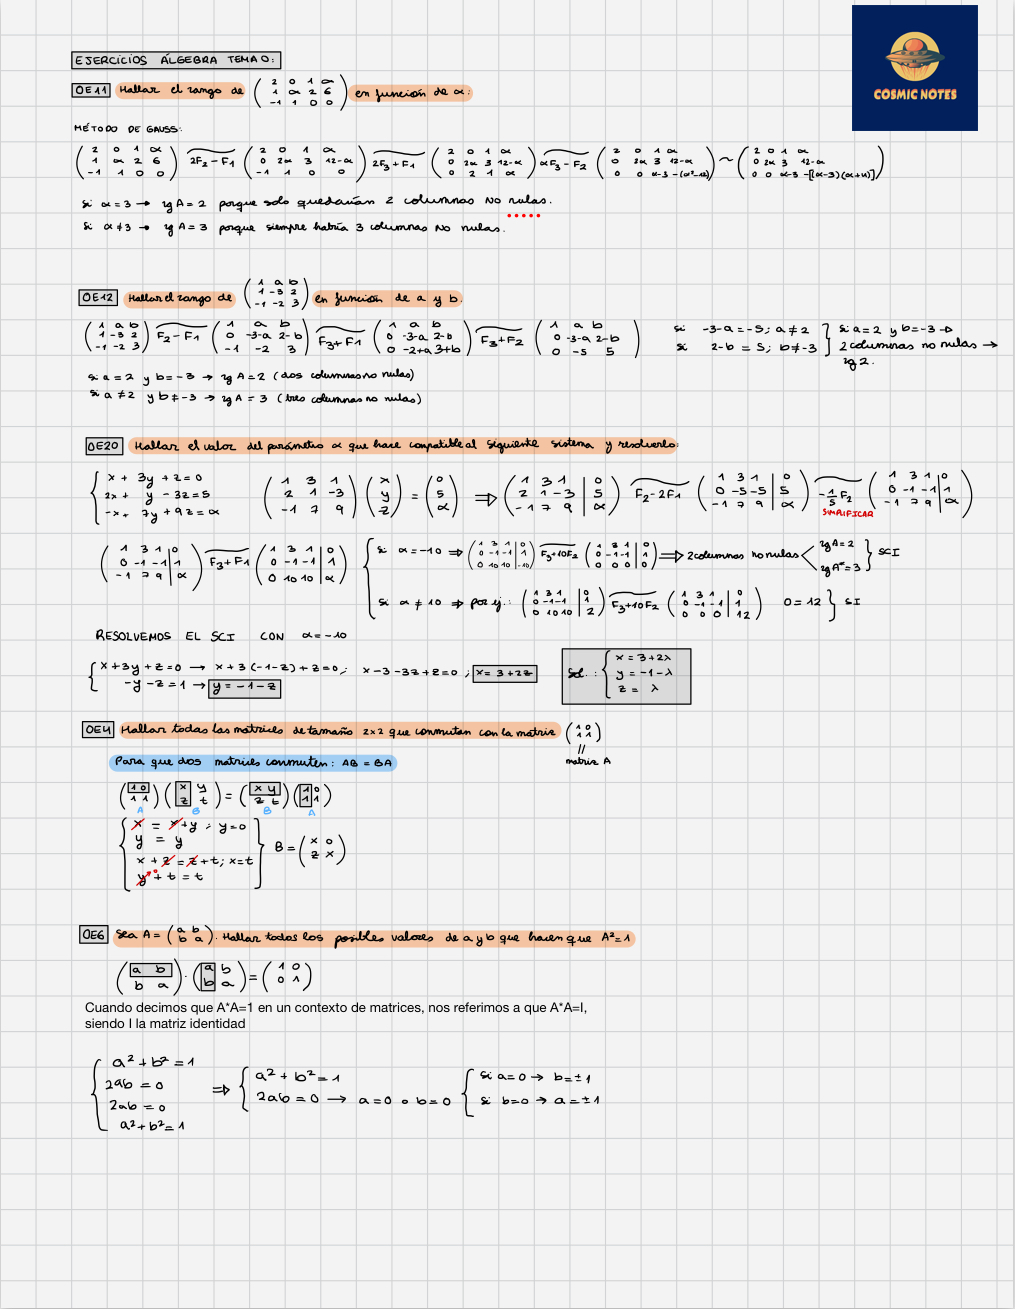 COSMIC NOTES
EJERCICIOS ÁLGEBRA TEMA 0:
0E11 Hallar el rango de ( 2 0 1 α / 1 α 2 6 / -1 1 0 0 ) en función de α:
MÉTODO DE GAUSS:
( 2 0 1 α / 1 α 2 6 / -1 1 0 0 ) 2F2-F1 ( 2 0 1 α / 0 2α 3 12-α / -1 1 0 0 ) 2F3+F1 ( 2 0 1 α / 0 2α 3 12-α / 0 2 1 α ) αF3-F2 ( 2 0 1 α / 0 2α 3 12-α / 0 0 α-3 -(α²-12) ) ~ ( 2 0 1 α / 0 2α 3 12-α / 0 0 α-3 -[(α-3)(α+4)] )
Si α=3 → rg A=2 porque solo quedarían 2 columnas NO nulas.
Si α≠3 → rg A=3 porque siempre habría 3 columnas NO nulas.
0E12 Hallar el rango de ( 1 a b / 1 -3 2 / -1 -2 3 ) en función de a y b.
( 1 a b / 1 -3 2 / -1 -2 3 ) F2-F1 ( 1 a b / 0 -3-a 2-b / -1 -2 3 ) F3+F1 ( 1 a b / 0 -3-a 2-b / 0 -2+a 3+b ) F3+F2 ( 1 a b / 0 -3-a 2-b / 0 -5 5 )
Si -3-a=-5; a≠2
Si 2-b=5; b≠-3
Si a=2 y b=-3 →
2 columnas no nulas →
rg 2.
Si a=2 y b=-3 → rg A=2 (dos columnas no nulas)
Si a≠2 y b≠-3 → rg A=3 (tres columnas no nulas)
0E20 Hallar el valor del parámetro α que hace compatible al siguiente sistema y resolverlo:
{ x+3y+z=0 / 2x+y-3z=5 / -x+7y+9z=α ( 1 3 1 / 2 1 -3 / -1 7 9 ) ( x / y / z ) = ( 0 / 5 / α ) ⇒ ( 1 3 1 | 0 / 2 1 -3 | 5 / -1 7 9 | α ) F2-2F1 ( 1 3 1 | 0 / 0 -5 -5 | 5 / -1 7 9 | α ) -1/5 F2 ( 1 3 1 | 0 / 0 -1 -1 | 1 / -1 7 9 | α )
SIMPLIFICAR
( 1 3 1 | 0 / 0 -1 -1 | 1 / -1 7 9 | α ) F3+F1 ( 1 3 1 | 0 / 0 -1 -1 | 1 / 0 10 10 | α )
Si α=-10 ⇒ ( 1 3 1 | 0 / 0 -1 -1 | 1 / 0 10 10 | -10 ) F3+10F2 ( 1 3 1 | 0 / 0 -1 -1 | 1 / 0 0 0 | 0 ) ⇒ 2 columnas no nulas < rg A=2 / rg A*=3 } SCI
Si α≠10 ⇒ por ej.: ( 1 3 1 | 0 / 0 -1 -1 | 1 / 0 10 10 | 2 ) F3+10F2 ( 1 3 1 | 0 / 0 -1 -1 | 1 / 0 0 0 | 12 ) 0=12 } SI
RESOLVEMOS EL SCI CON α=-10
{ x+3y+z=0 → x+3(-1-z)+z=0; x-3-3z+z=0; x=3+2z
-y-z=1 → y=-1-z
Sol.: { x=3+2λ / y=-1-λ / z= λ
0E4 Hallar todas las matrices de tamaño 2x2 que conmutan con la matriz ( 1 0 / 1 1 )
//
matriz A
Para que dos matrices conmuten: AB=BA
( 1 0 / 1 1 ) ( x y / z t ) = ( x y / z t ) ( 1 0 / 1 1 )
A B B A
x = x+y; y=0
y = y
x+z = z+t; x=t
y⁰+t=t
B= ( x 0 / z x )
0E6 Sea A= ( a b / b a ). Hallar todos los posibles valores de a y b que hacen que A²=1
( a b / b a ) · ( a b / b a ) = ( 1 0 / 0 1 )
Cuando decimos que A*A=1 en un contexto de matrices, nos referimos a que A*A=I,
siendo I la matriz identidad
{ a²+b²=1 / 2ab=0 / 2ab=0 / a²+b²=1 ⇒ { a²+b²=1 / 2ab=0 → a=0 o b=0 { Si a=0 → b=±1 / Si b=0 → a=±1